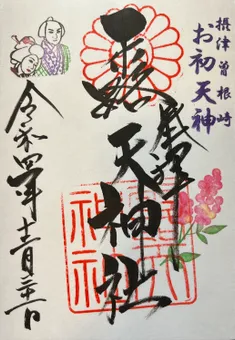 摂津 曽根崎
お初天神
奉拝
露天神社
令和四年十二月二十二日